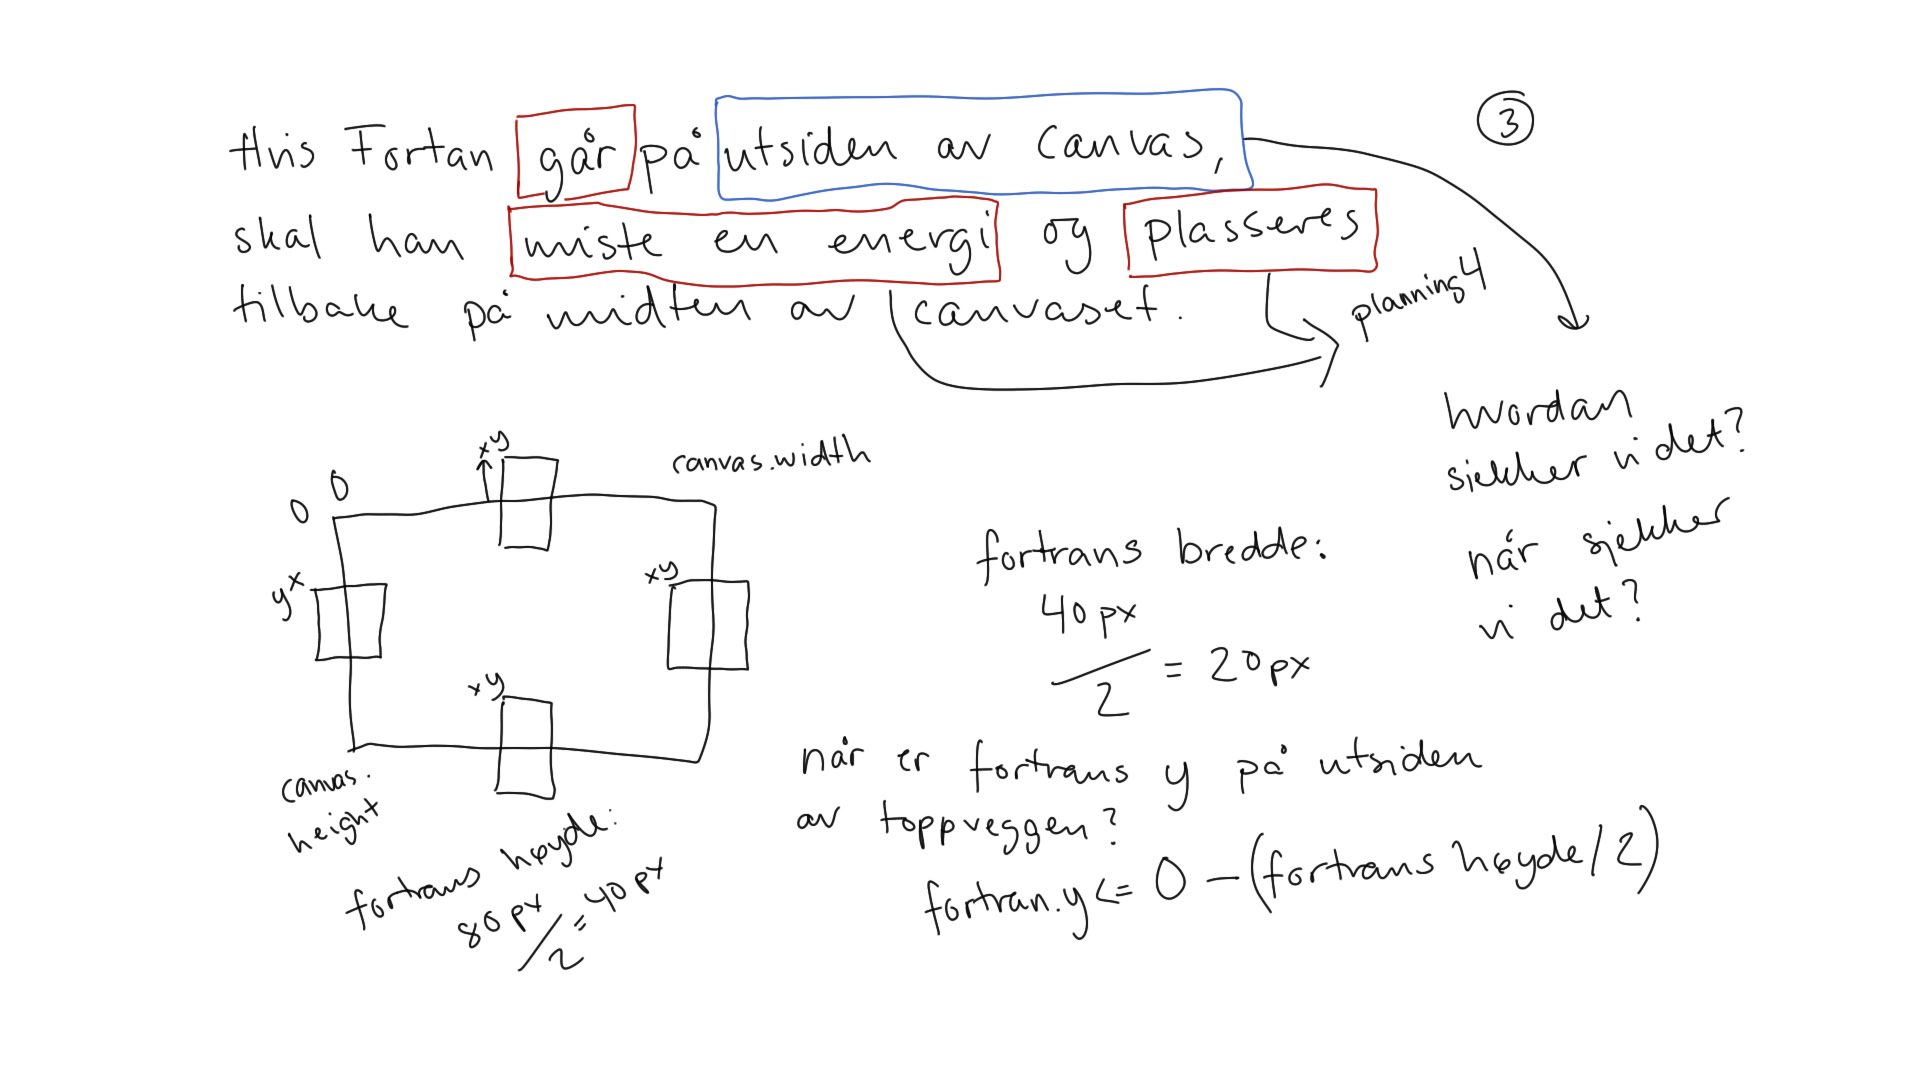 Hvis Fortan går på utsiden av canvas,
③
skal han miste en energi og plasseres
tilbake på midten av canvaset.
planning 4
hvordan
sjekker vi det?
når sjekker
vi det?
xy
canvas.width
0
0
yx
xy
xy
canvas.
height
fortrans høyde:
80px
/2 = 40px
fortrans bredde:
40px
/2 = 20px
når er fortrans y på utsiden
av toppveggen?
fortran.y <= 0 - (fortrans høyde/2)